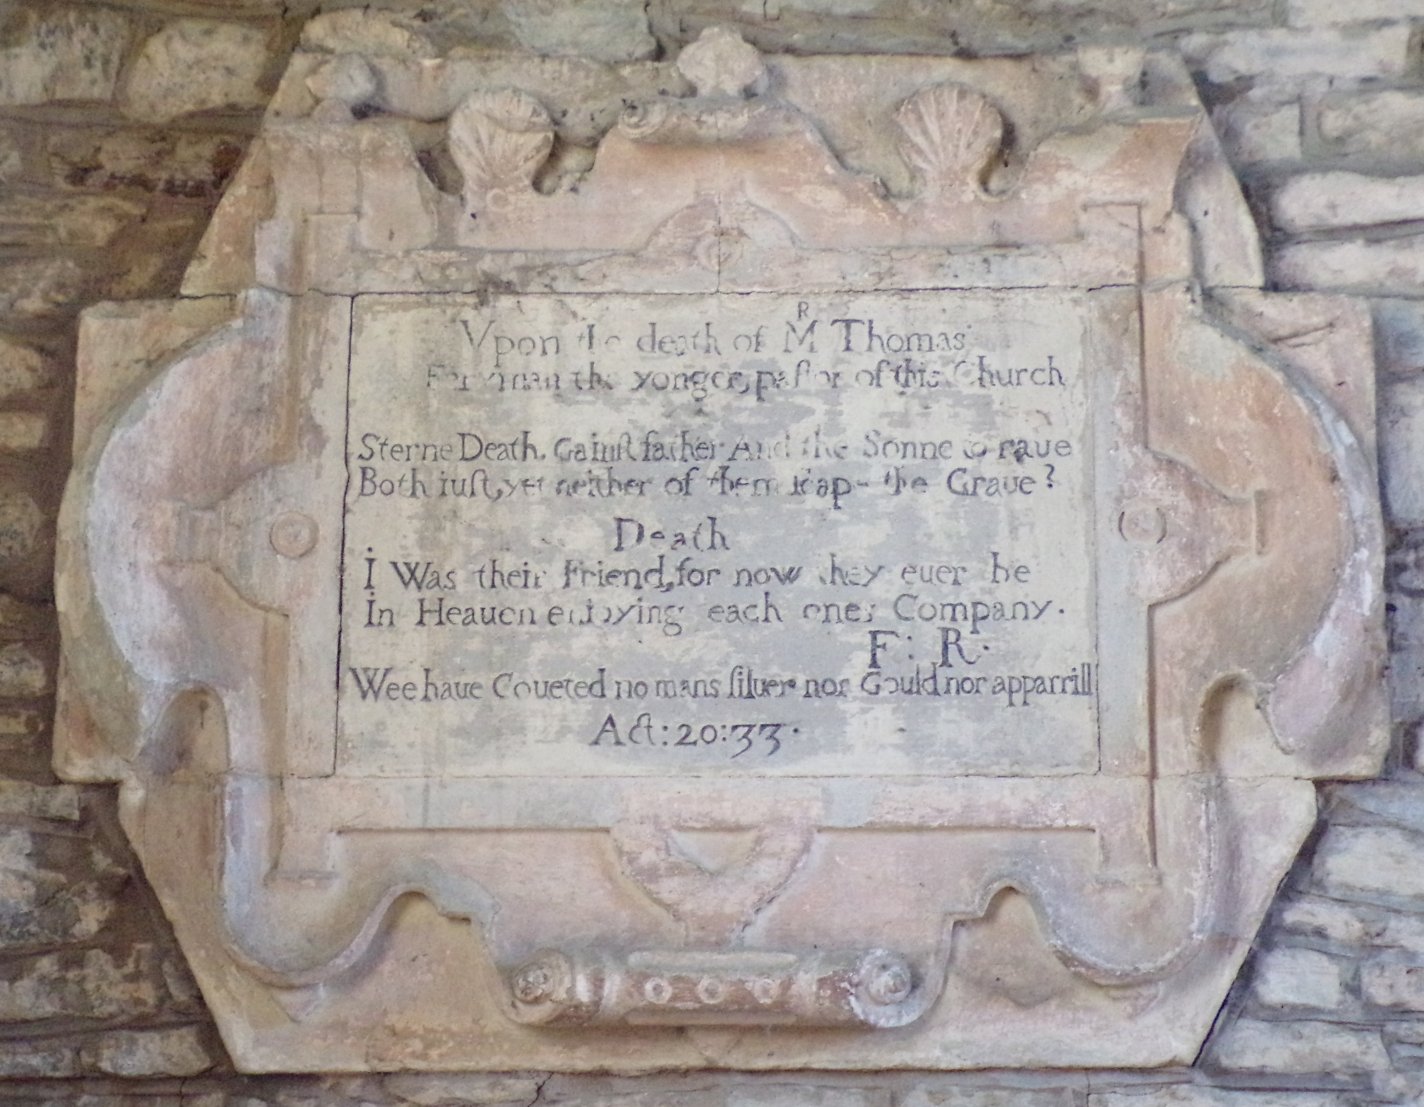 Vpon the death of Mʀ Thomas
the yonger, paſtor of this Church
Sterne Death, gainſt father And the Sonne to raue
Both iuſt, yet neither of them the Graue?
Death
I Was their Friend, for now they euer be
In Heauen enioying each ones Company.
F: R.
Wee haue Coueted no mans ſiluer nor Gould nor apparrill
Act: 20: 33.